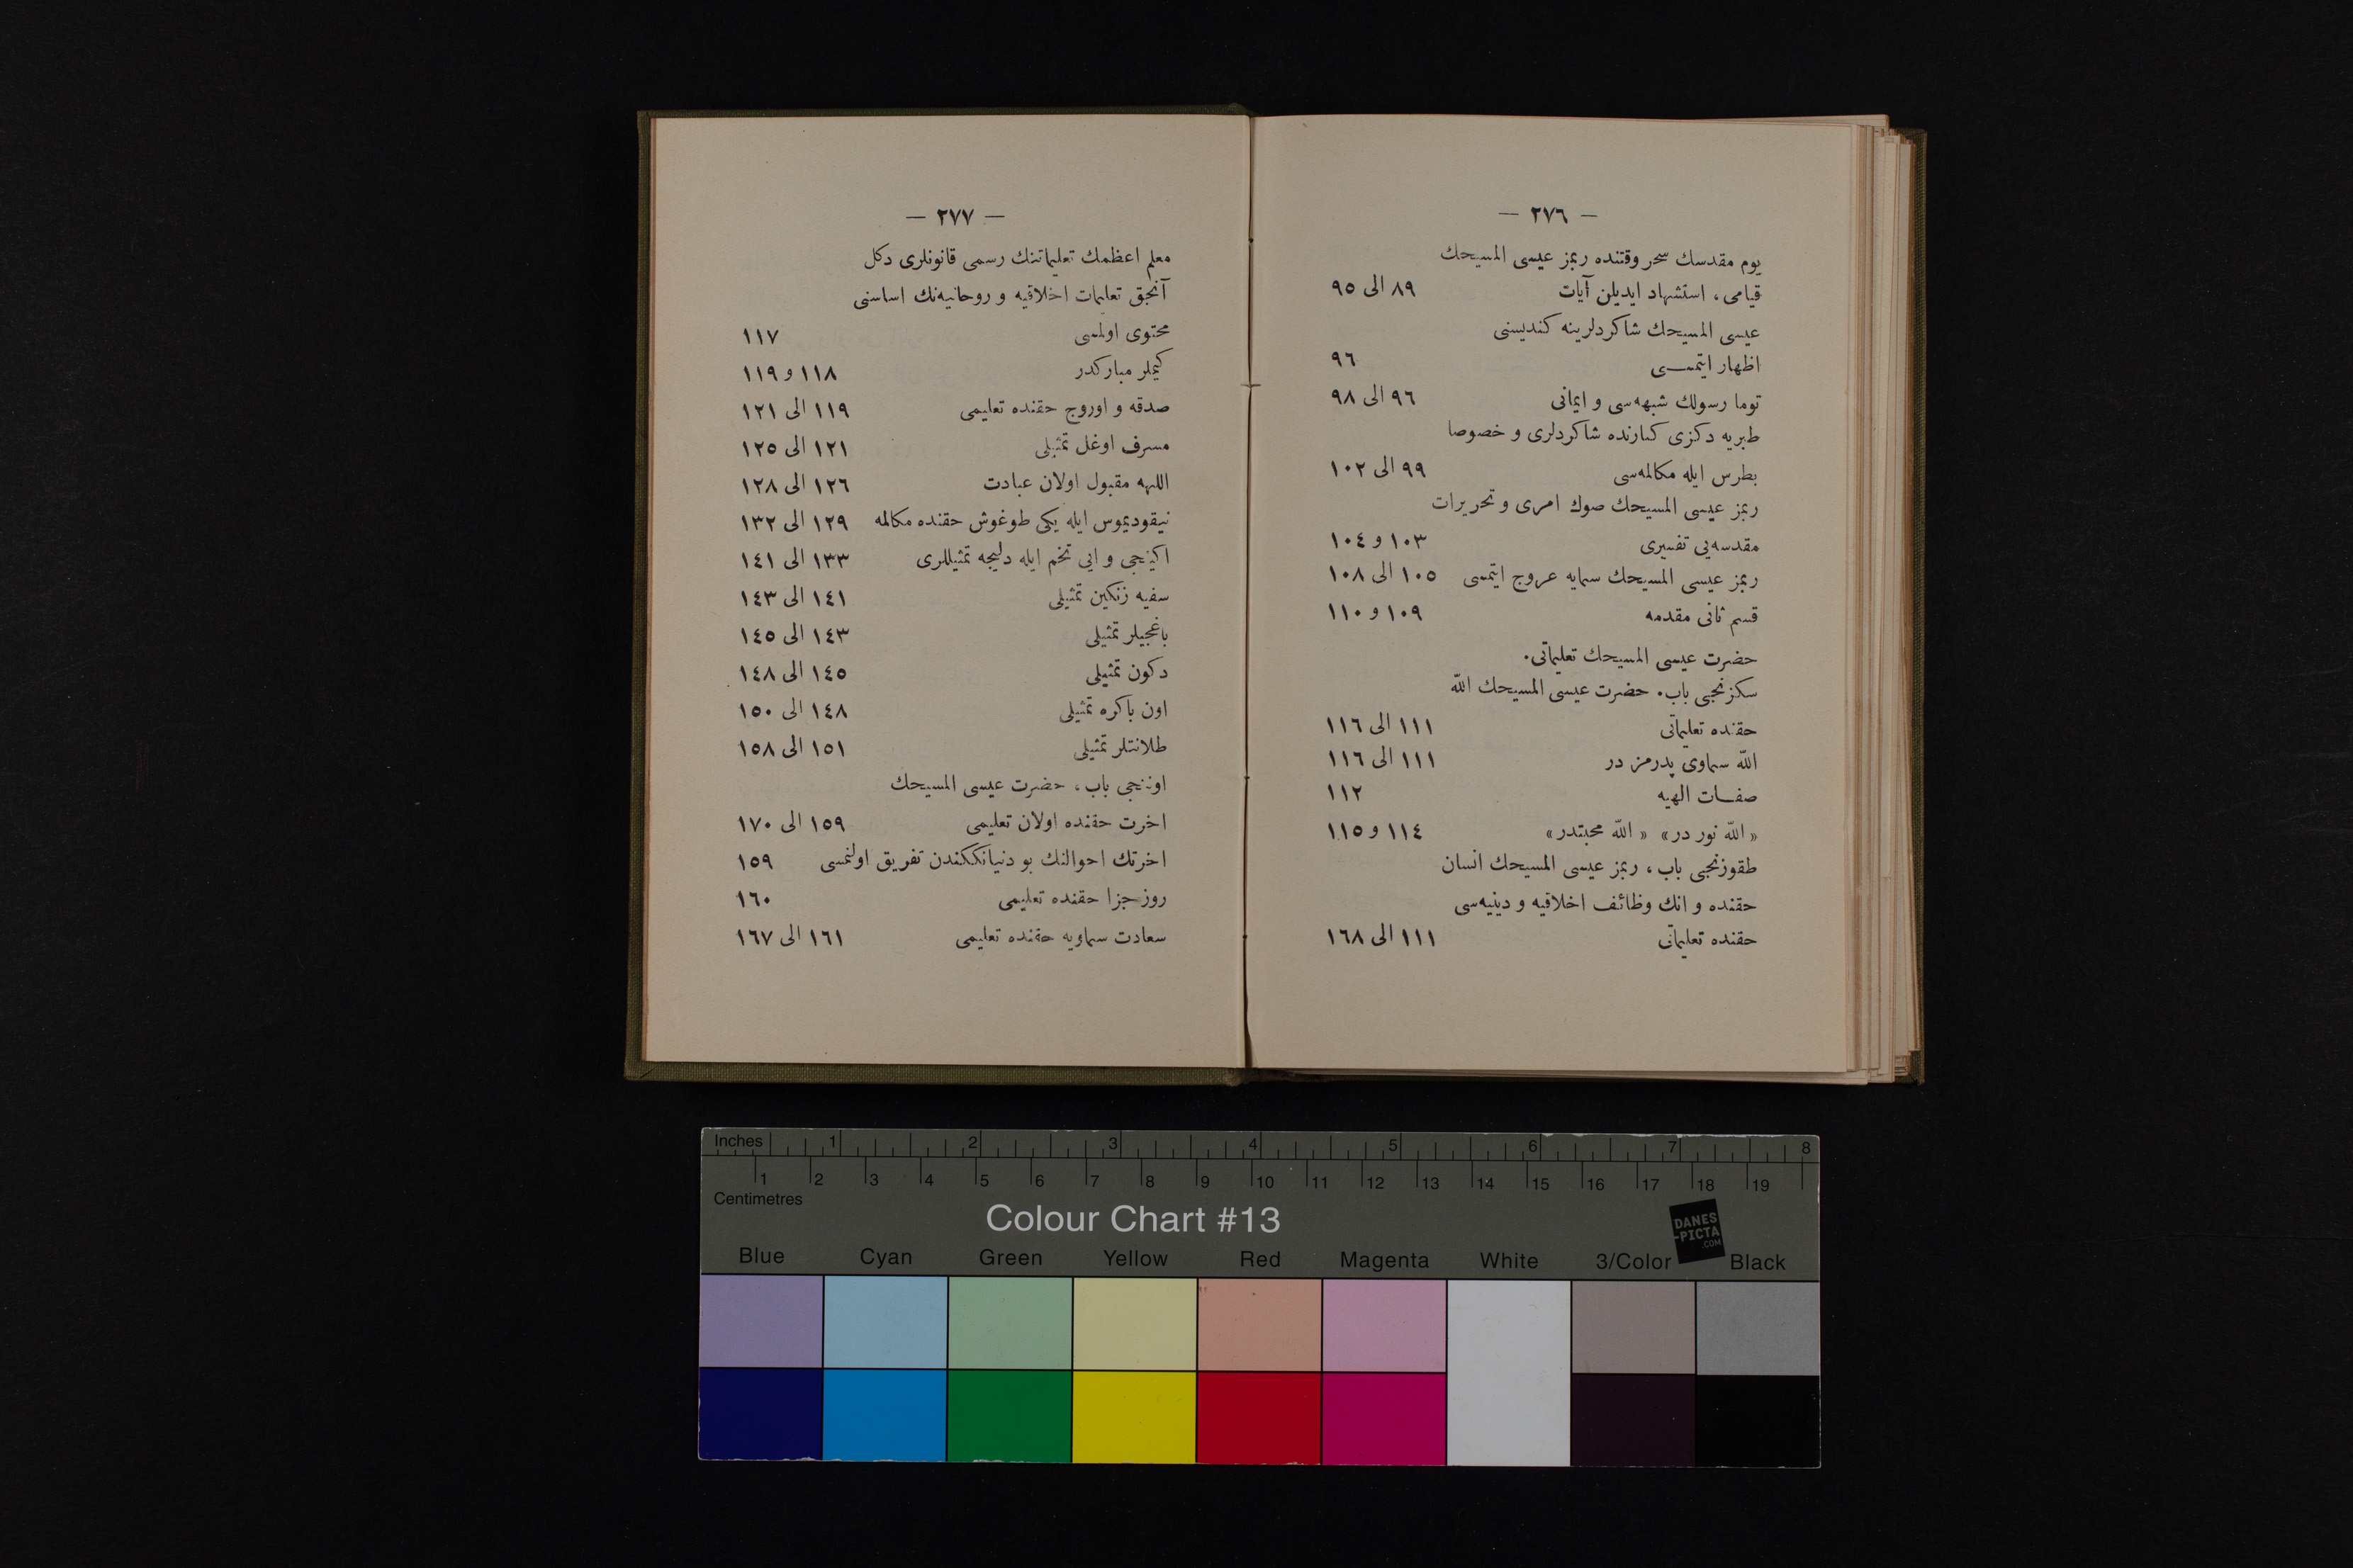 — ٢٧٦ —
يوم مقدسك سحر وقتنده ربمز عيسى المسيحك
قيامى، استشهاد ايديلن آيات ٨٩ الى ٩٥
عيسى المسيحك شاكردلرينه كنديسنى
اظهار ايتمسى ٩٦
توما رسولك شبهه‌سى و ايمانى ٩٦ الى ٩٨
طبريه دكزى كنارنده شاكردلرى و خصوصا
بطرس ايله مكالمه‌سى ٩٩ الى ١٠٢
ربمز عيسى المسيحك صوك امرى و تحريرات
مقدسه‌يى تفسيرى ١٠٣ و ١٠٤
ربمز عيسى المسيحك سمايه عروج ايتمسى ١٠٥ الى ١٠٨
قسم ثانى مقدمه ١٠٩ و ١١٠
حضرت عيسى المسيحك تعليماتى.
سكزنجى باب. حضرت عيسى المسيحك اللّٰه
حقنده تعليماتى ١١١ الى ١١٦
اللّٰه سماوى پدرمز در ١١١ الى ١١٦
صفات الهيه ١١٢
« اللّٰه نور در» « اللّٰه محبتدر» ١١٤ و ١١٥
طقوزنجى باب، ربمز عيسى المسيحك انسان
حقنده و انك وظائف اخلاقيه و دينيه‌سى
حقنده تعليماتى ١١١ الى ١٦٨
— ٢٧٧ —
معلم اعظمك تعليماتنك رسمى قانونلرى دكل
آنجق تعليمات اخلاقيه و روحانيه‌نك اساسنى
محتوى اولمسى ١١٧
كيملر مباركدر ١١٨ و ١١٩
صدقه و اوروج حقنده تعليمى ١١٩ الى ١٢١
مسرف اوغل تمثيلى ١٢١ الى ١٢٥
اللهه مقبول اولان عبادت ١٢٦ الى ١٢٨
نيقوديموس ايله يكى طوغوش حقنده مكالمه ١٢٩ الى ١٣٢
اكينجى و ايى تخم ايله دليجه تمثيللرى ١٣٣ الى ١٤١
سفيه زنكين تمثيلى ١٤١ الى ١٤٣
باغجيلر تمثيلى ١٤٣ الى ١٤٥
دكون تمثيلى ١٤٥ الى ١٤٨
اون باكره تمثيلى ١٤٨ الى ١٥٠
طلانتلر تمثيلى ١٥١ الى ١٥٨
اوننجى باب، حضرت عيسى المسيحك
اخرت حقنده اولان تعليمى ١٥٩ الى ١٧٠
اخرتك احوالنك بو دنيانككندن تفريق اولنمسى ١٥٩
روز جزا حقنده تعليمى ١٦٠
سعادت سماويه حقنده تعليمى ١٦١ الى ١٦٧
Inches 1 2 3 4 5 6 7 8
1 2 3 4 5 6 7 8 9 10 11 12 13 14 15 16 17 18 19
Centimetres
Colour Chart #13
DANES
-PICTA
.COM
Blue Cyan Green Yellow Red Magenta White 3/Color Black